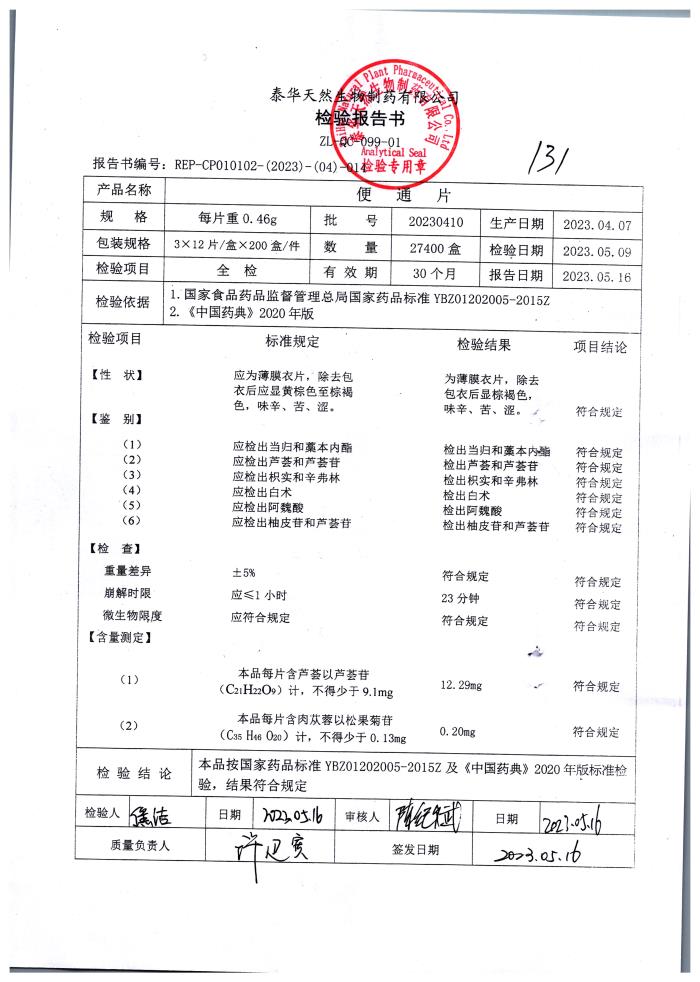 泰华天然生物制药有限公司
检验报告书
ZL-QC-099-01
Natural Plant Pharmaceutical Co., Ltd
泰华天然生物制药有限公司
Analytical Seal
检验专用章
131
报告书编号：REP-CP010102-(2023)-(04)-014
产品名称 便 通 片
规 格 每片重 0.46g 批 号 20230410 生产日期 2023.04.07
包装规格 3×12 片/盒×200 盒/件 数 量 27400 盒 检验日期 2023.05.09
检验项目 全 检 有 效 期 30 个月 报告日期 2023.05.16
检验依据 1.国家食品药品监督管理总局国家药品标准 YBZ01202005-2015Z
2.《中国药典》2020 年版
检验项目 标准规定 检验结果 项目结论
【性 状】 应为薄膜衣片，除去包 为薄膜衣片，除去
衣后应显黄棕色至棕褐 包衣后显棕褐色，
色，味辛、苦、涩。 味辛、苦、涩。 符合规定
【鉴 别】
（1） 应检出当归和藁本内酯 检出当归和藁本内酯 符合规定
（2） 应检出芦荟和芦荟苷 检出芦荟和芦荟苷 符合规定
（3） 应检出枳实和辛弗林 检出枳实和辛弗林 符合规定
（4） 应检出白术 检出白术 符合规定
（5） 应检出阿魏酸 检出阿魏酸 符合规定
（6） 应检出柚皮苷和芦荟苷 检出柚皮苷和芦荟苷 符合规定
【检 查】
重量差异 ±5% 符合规定 符合规定
崩解时限 应≤1 小时 23 分钟 符合规定
微生物限度 应符合规定 符合规定 符合规定
【含量测定】
（1） 本品每片含芦荟以芦荟苷
（C21H22O9）计，不得少于 9.1mg 12.29mg 符合规定
（2） 本品每片含肉苁蓉以松果菊苷
（C35 H46 O20）计，不得少于 0.13mg 0.20mg 符合规定
检 验 结 论 本品按国家药品标准 YBZ01202005-2015Z 及《中国药典》2020 年版标准检
验，结果符合规定
检验人 日期 2023.05.16 审核人 日期 2023.05.16
质量负责人 签发日期 2023.05.16